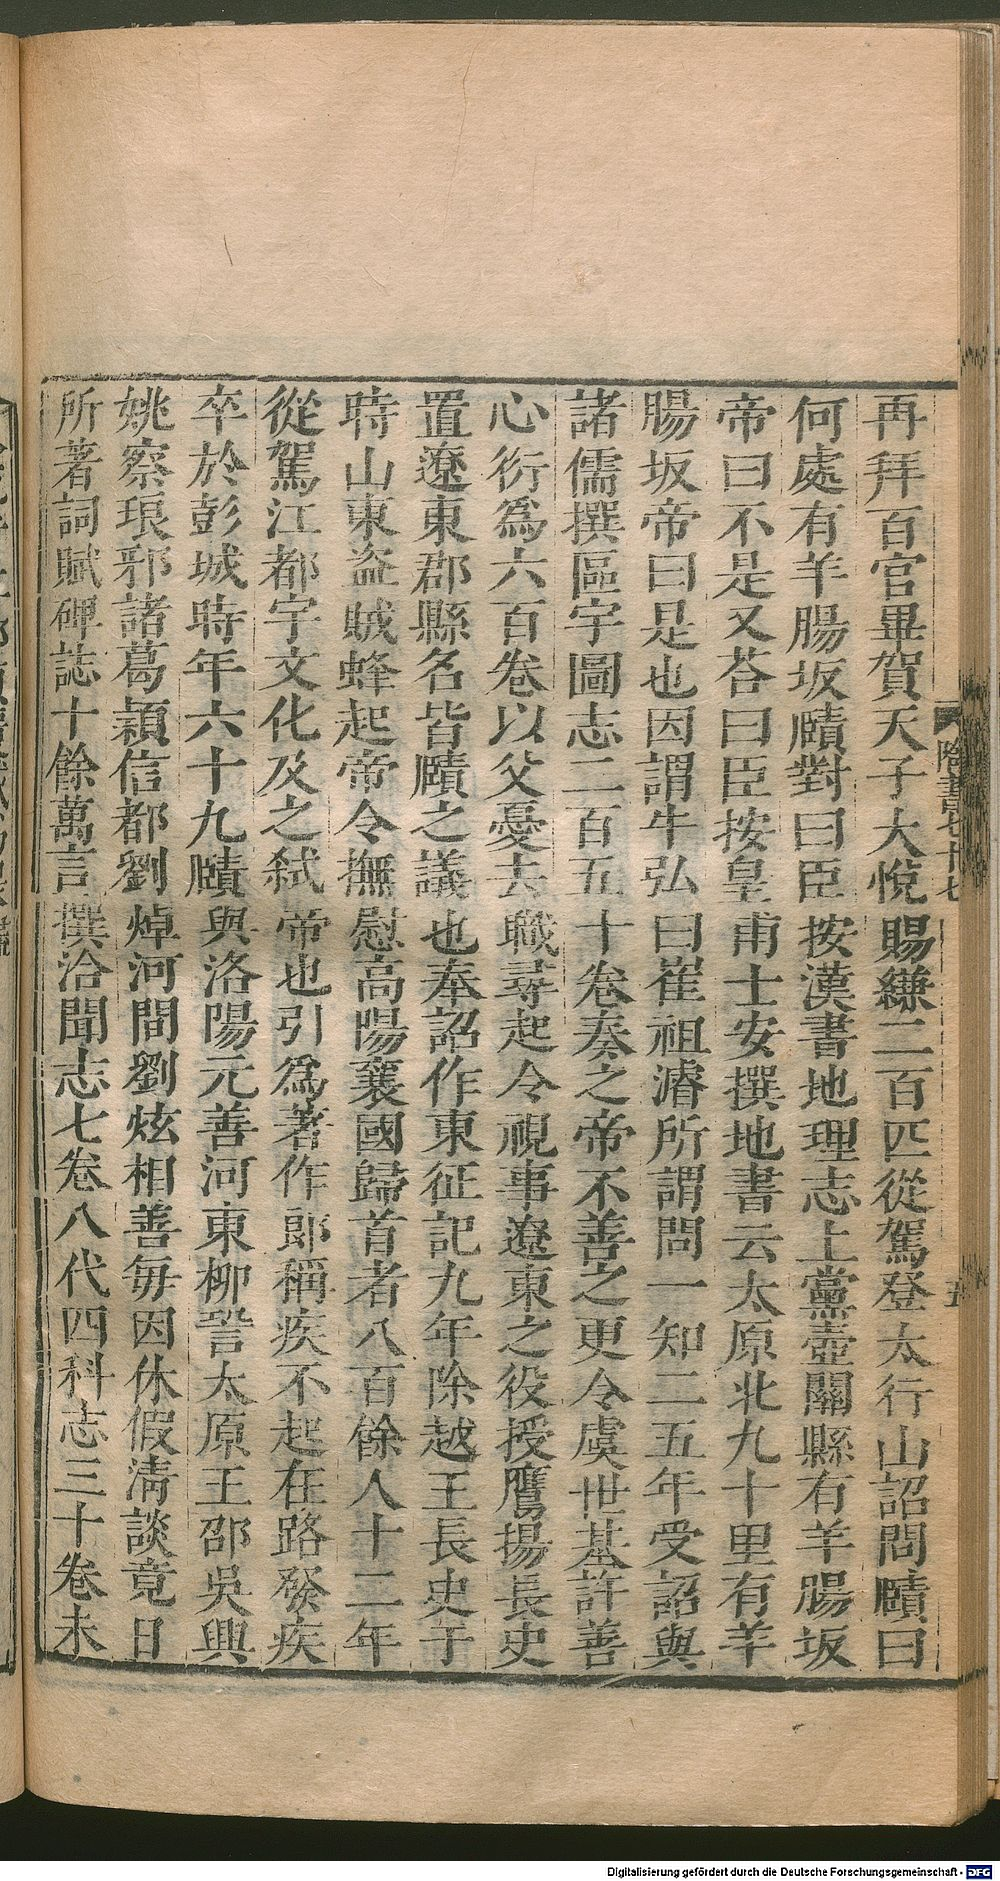 再拜百官畢賀天子大悅賜縑二百匹從駕登太行山詔問賾曰
何處有羊腸坂賾對曰臣按漢書地理志上黨壺關縣有羊腸坂
帝曰不是又荅曰臣按皇甫士安撰地書云太原北九十里有羊
腸坂帝曰是也因謂牛弘曰崔祖濬所謂問一知二五年受詔與
諸儒撰區宇圖志二百五十卷奏之帝不善之更令虞世基許善
心衍爲六百卷以父憂去職尋起令視事遼東之役授鷹揚長史
置遼東郡縣名皆賾之議也奉詔作東征記九年除越王長史于
時山東盗賊蜂起帝令撫慰高陽襄國歸首者八百餘人十二年
從駕江都宇文化及之弒帝也引爲著作郎稱疾不起在路發疾
卒於彭城時年六十九賾與洛陽元善河東柳䛒太原王邵吳興
姚察琅邪諸葛潁信都劉焯河間劉炫相善毎因休假淸談竟日
所著詞賦碑誌十餘萬言撰洽聞志七卷八代四科志三十卷未
隋書七十七
五
Digitalisierung gefördert durch die Deutsche Forschungsgemeinschaft - DFG